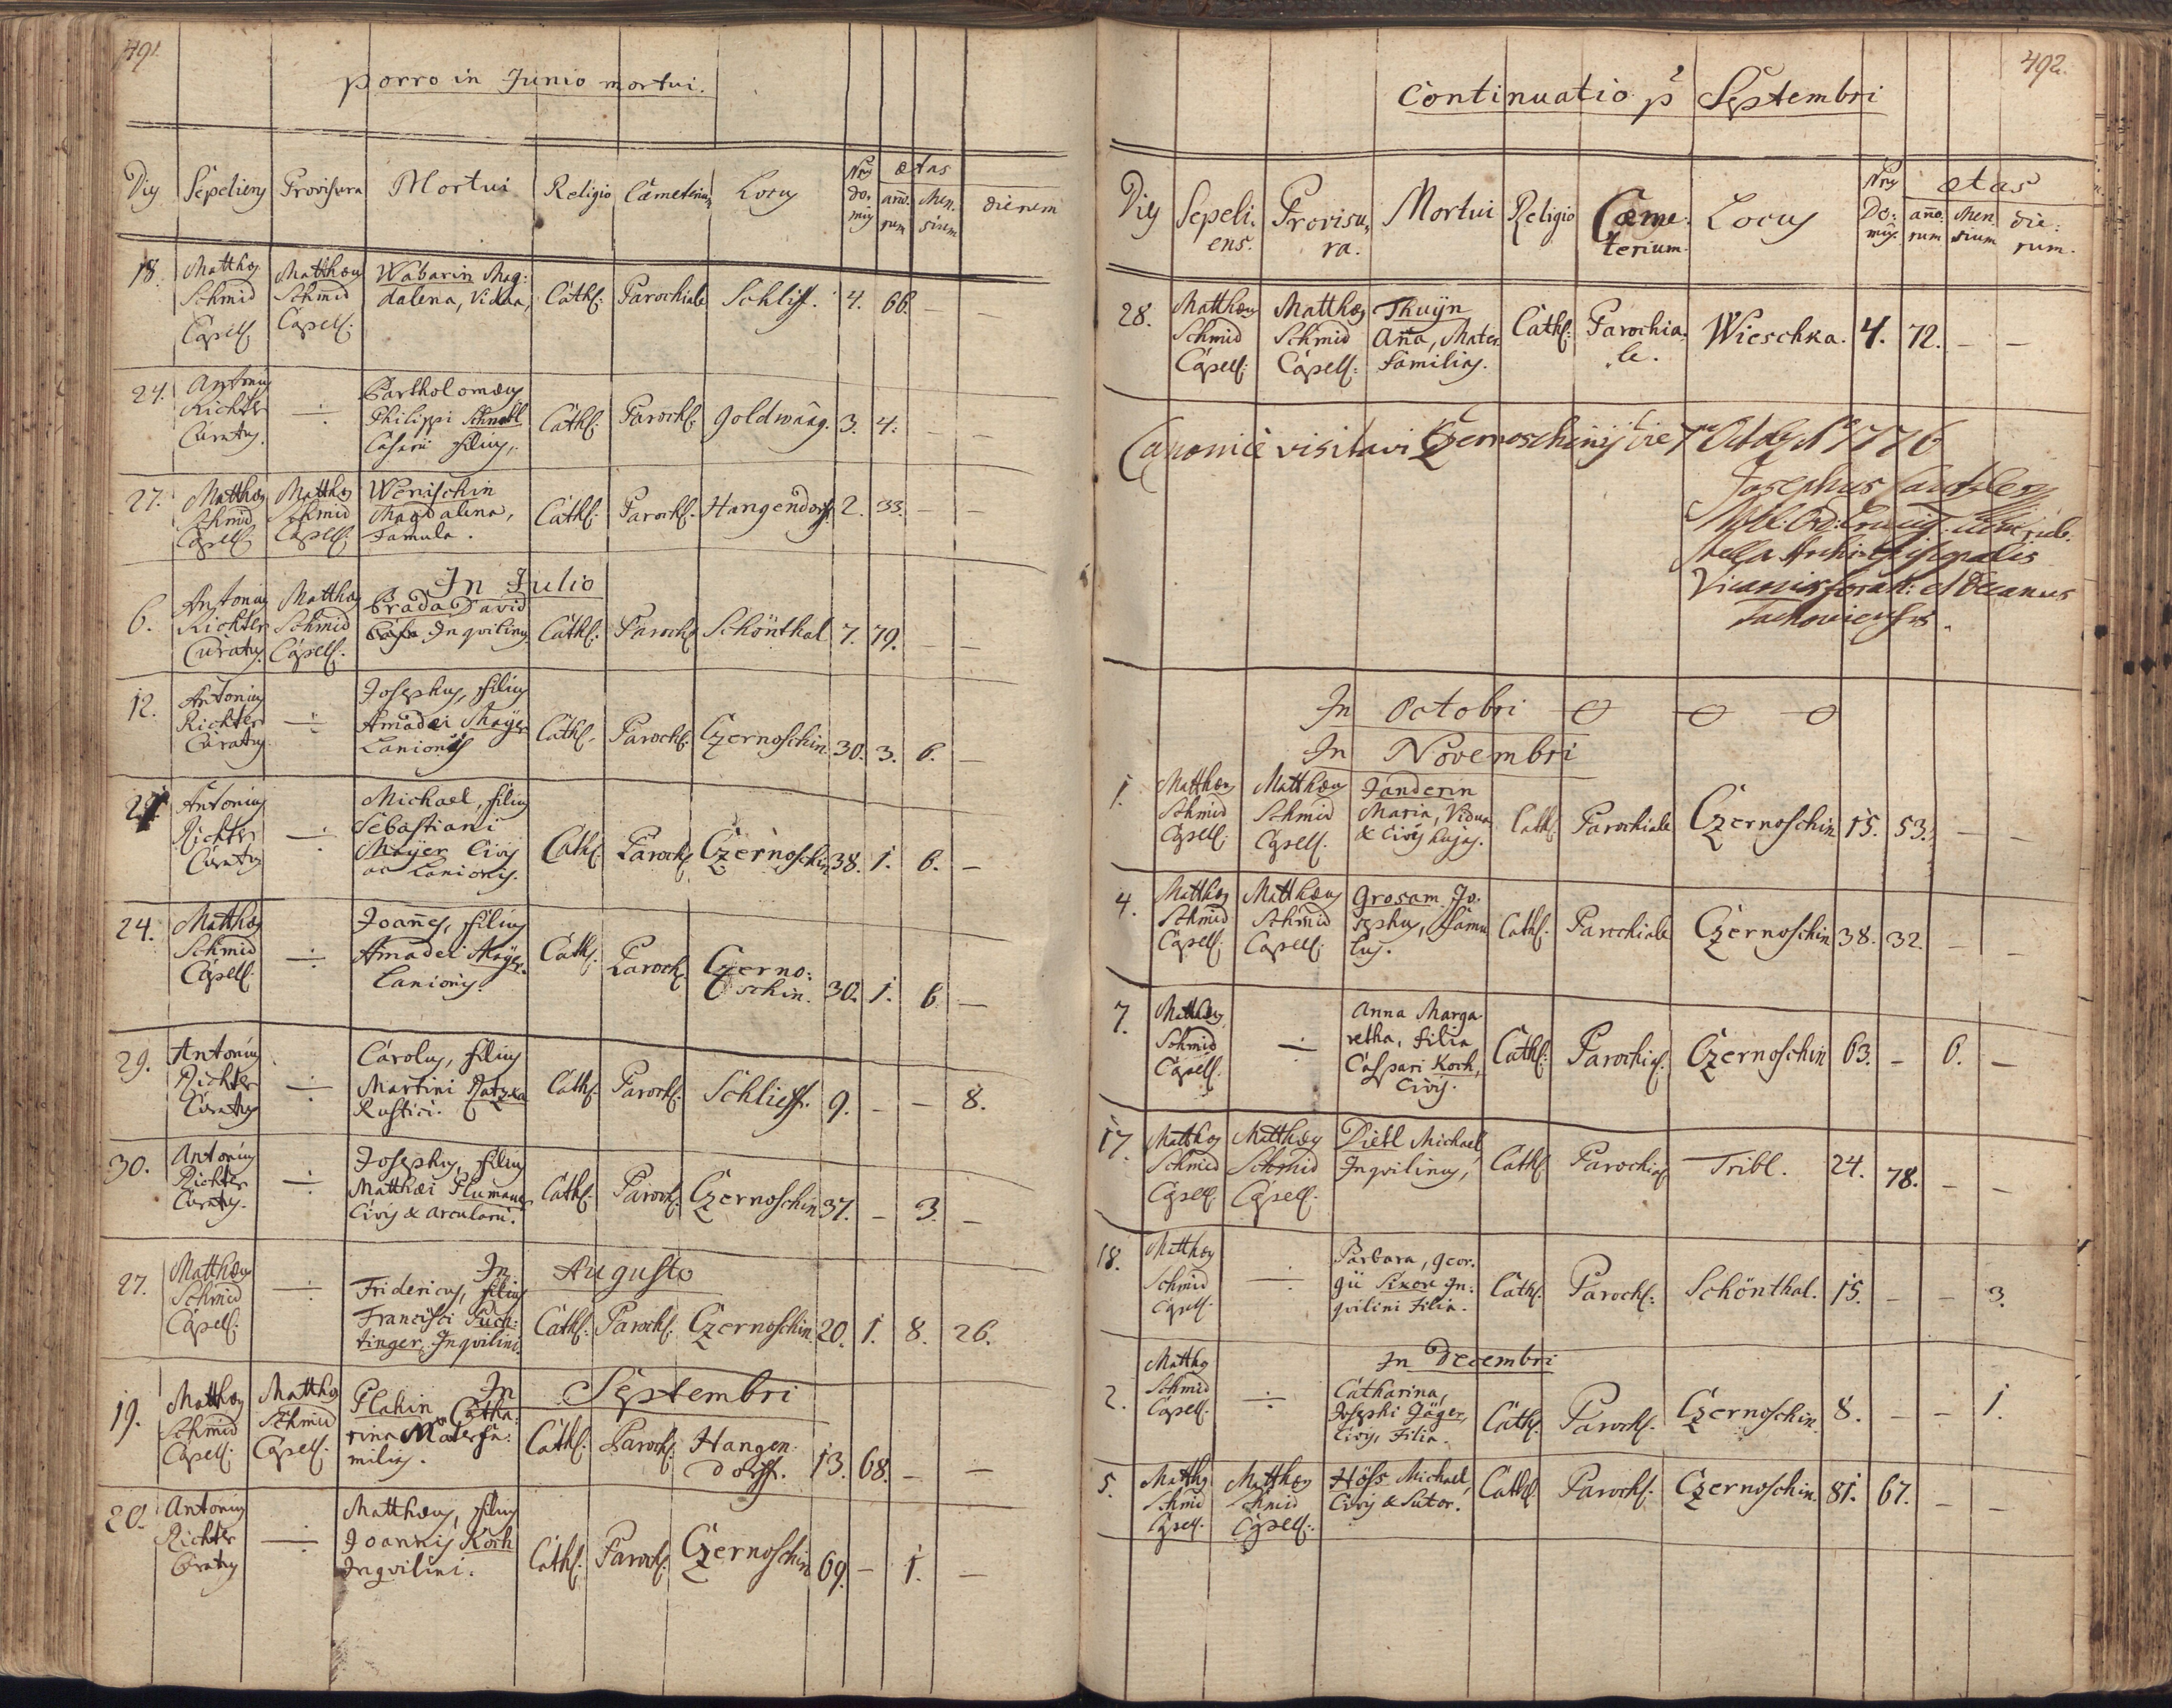 491.
porro in Junio mortui.
Dies Sepeliens Provisura Mortui Religio Cæmeterium Locus Nrus do: mus ætas
año: rum Men: sium dierum
18. Matthæus Matthæus Wabarin Mag:
Schmid Schmid dalena, Vidua, Cath: Parochiale Schliff. 4. 66. — —
Capell: Capell:
24. Antonius Bartholomæus
Richter ÷ Philippi Schnabl Cath: Paroch: Goldwäng. 3. 4. — —
Curatus. Casarii filius,
27. Matthæus Matthæus Wenischin
Schmid Schmid Magdalena, Cath: Paroch: Hangendorf. 2. 33. — —
Capell: Capell: Famula.
In Julio
6. Antonius Matthæus Brada David
Richter Schmid Inqvilinus Cath: Paroch: Schönthal 7. 79. — —
Curatus. Capell:
12. Antonius Josephus, filius
Richter ÷ Amadei Mayer Cath: Paroch: Czernoschin 30. 3. 6. —
Curatus Lanionis
Antonius Michael, filius
Richter ÷ Sebastiani
Curatus Mayer Civis Cath: Paroch: Czernoschin 38. 1. 6. —
ac Lanionis.
24. Matthæus Joañes, filius
Schmid ÷ Amadei Mayer Cath: Paroch: Czerno:
Capell: Lanionis. schin. 30. 1. 6. —
29. Antonius Carolus, filius
Richter ÷ Martini Ratzka Cath: Paroch: Schlieff. 9. — — 8.
Curatus Rustici.
30. Antonius Josephus, filius
Richter ÷ Matthæi Plumauer Cath: Paroch: Czernoschin 37. — 3. —
Curatus. Civis & arcularii.
In Augusto
27. Matthæus Fridericus, filius
Schmid ÷ Francisci Püch:
Capell: tinger, Inqvilini. Cath: Paroch: Czernoschin 20. 1. 8. 26.
In Septembri
19. Matthæus Matthæus Plahin Catha:
Schmid Schmid rina Materfa: Cath: Paroch: Hangen:
Capell: Capell: milias. dorff. 13. 68. — —
20. Antonius Matthæus, filius
Richter ÷ Joannis Koch Cath: Paroch: Czernoschin 69. — 1. —
Curatus Inqvilini.
492.
Continuatio p Septembri
Dies Sepeli: ens. Provisu: ra. Mortui Religio Cæme: terium. Locus Nrus Do: mus. ætas
año: rum Men: sium die: rum.
28. Matthæus Matthæus Thuÿn
Schmid Schmid Aña, Mater Cath: Parochia: Wieschka. 4. 72. — —
Capell: Capell: familias. le.
Canonice visitavi Czernoschinij die 7ma Octobr 1776
Josephus
Archi Episcopalis
Vicarius foran: et Decanus
Tachoviensis.
In Octobri
In Novembri
1. Matthæus Matthæus Janderin
Schmid Schmid Maria, Vidua Cath: Parochiale Czernoschin 15. 53. — —
Capell: Capell: & Civis hujas.
4. Matthæus Matthæus Grosam Jo:
Schmid Schmid sephus, famu Cath: Parochiale Czernoschin 38. 32. — —
Capell: Capell: lus.
7. Matthæus Anna Marga
Schmid ÷ retha, filia Cath: Parochia: Czernoschin 63. — 6. —
Capell: Caspari Koch,
Civis.
17. Matthæus Matthæus Dietl Michael,
Schmid Schmid Inqvilinus, Cath: Parochia: Tribl. 24. 78. — —
Capell: Capell:
18. Matthæus Barbara, Geor:
Schmid ÷ gii Sixen In: Cath: Paroch: Schönthal. 15. — — 3.
Capell: qvilini Filia.
In Decembri
2. Matthæus Catharina,
Schmid ÷ Josephi Jäger, Cath: Paroch: Czernoschin 8. — — 1.
Capell: Civis, Filia.
5. Matthæus Matthæus Höss Michael, Cath: Paroch: Czernoschin. 81. 67. — —
Schmid Schmid Civis & Sutor.
Capell: Capell: